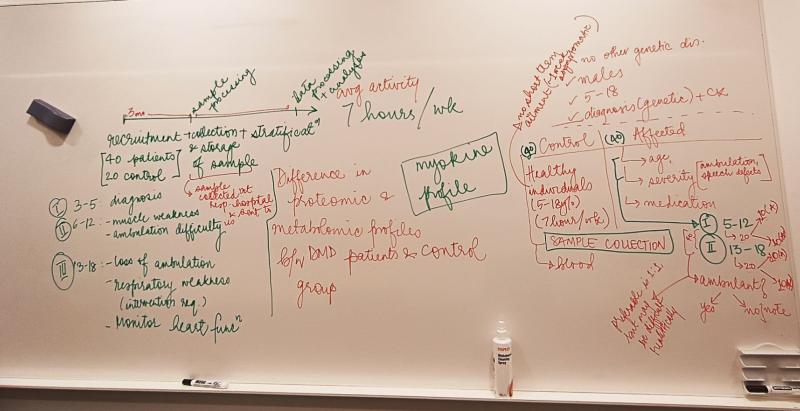 3mo
sample processing
data processing + analysis
recruitment + collection + stratificatⁿ
& storage of sample
[40 patients
20 control]
→ sample collected at resp. hospital & sent to
I 3-5: diagnosis
II 6-12: - muscle weakness
- ambulation difficulty
III 13-18: - Loss of ambulation
- respiratory weakness
(intervention req.)
- Monitor heart funcⁿ
avg activity
7 hours/wk
Difference in
proteomic &
metabolomic profiles
b/w DMD patients & control
group
myokine
profile
no short term ailment (asymptomatic)
✓ no other genetic dis.
✓ males
✓ 5-18
✓ diagnosis (genetic) + CK
Control
Healthy
individuals
(5-18y/o)
(7 hour/wk)
SAMPLE COLLECTION
→ blood
40 Affected
→ age
→ severity [ambulation, speech defects]
→ medication
I 5-12
→ 20
II 13-18
→ 20
→ ambulant?
yes
no | note
preferable is 1:1
but may be difficult